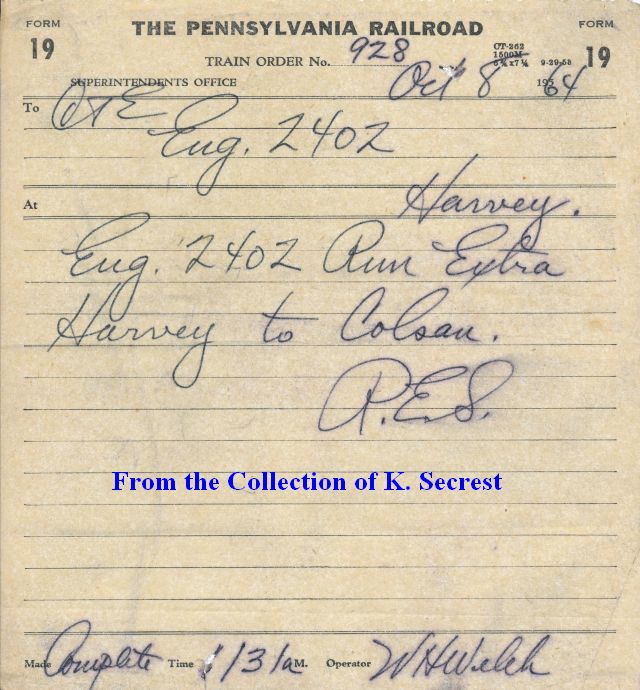 FORM THE PENNSYLVANIA RAILROAD FORM
19 TRAIN ORDER No. 928 CT-262 1500M 9-29-58 19
SUPERINTENDENTS OFFICE Oct 8 1964
To C&E
Eng. 2402
At Harvey.
Eng. 2402 Run Extra
Harvey to Colsan.
R.E.S.
From the Collection of K. Secrest
Made Complete Time 131a M. Operator WHWelch